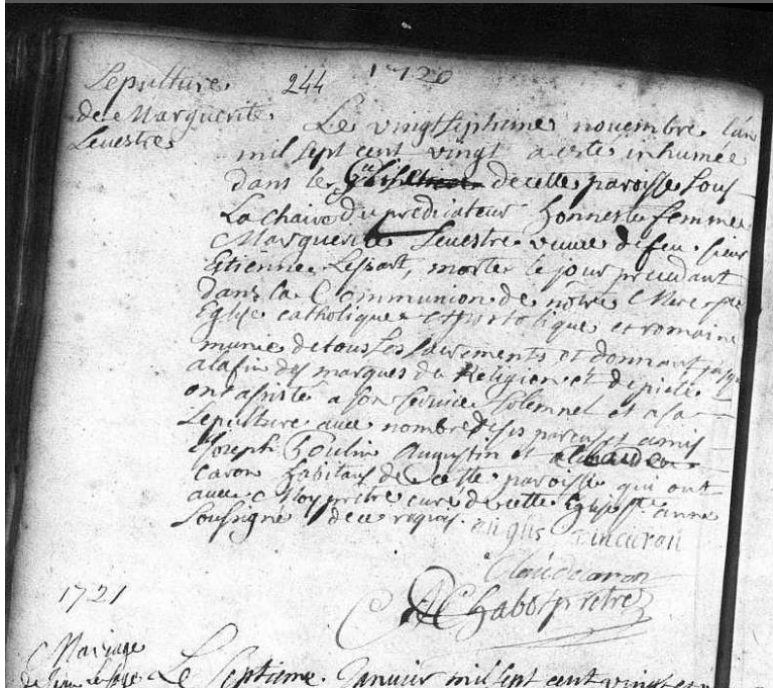 244 1720
Sepulture
de Marguerite
Leuestre
Le vingtseptieme novembre l'an
mil sept cent vingt a este inhumée
dans le decette paroisse sous
La chaire du predicateur honneste femme
Marguerite Leuestre veuve de feu sieur
Etienne Lessart, morte le jour precedant
dans la Communion de nôtre Mere Ste
Eglise catholique Apostolique et romaine
munie de tous les sacrements et donnant jusqu
alafin des marques de Religion et de pieté
ont assisté a son service solemnel et a sa
sepulture avec nombre de ses parens et amis
Joseph Poulin Augustin et claude
caron habitans de cette paroisse qui ont
avec Moy prêtre curé de cette Eglise Ste anne
Sousigné de ce requis. augustincaron
Claudecaron
Chabot prêtre
1721
Mariage
de Le Septieme Janvier mil sept cent vingt et un